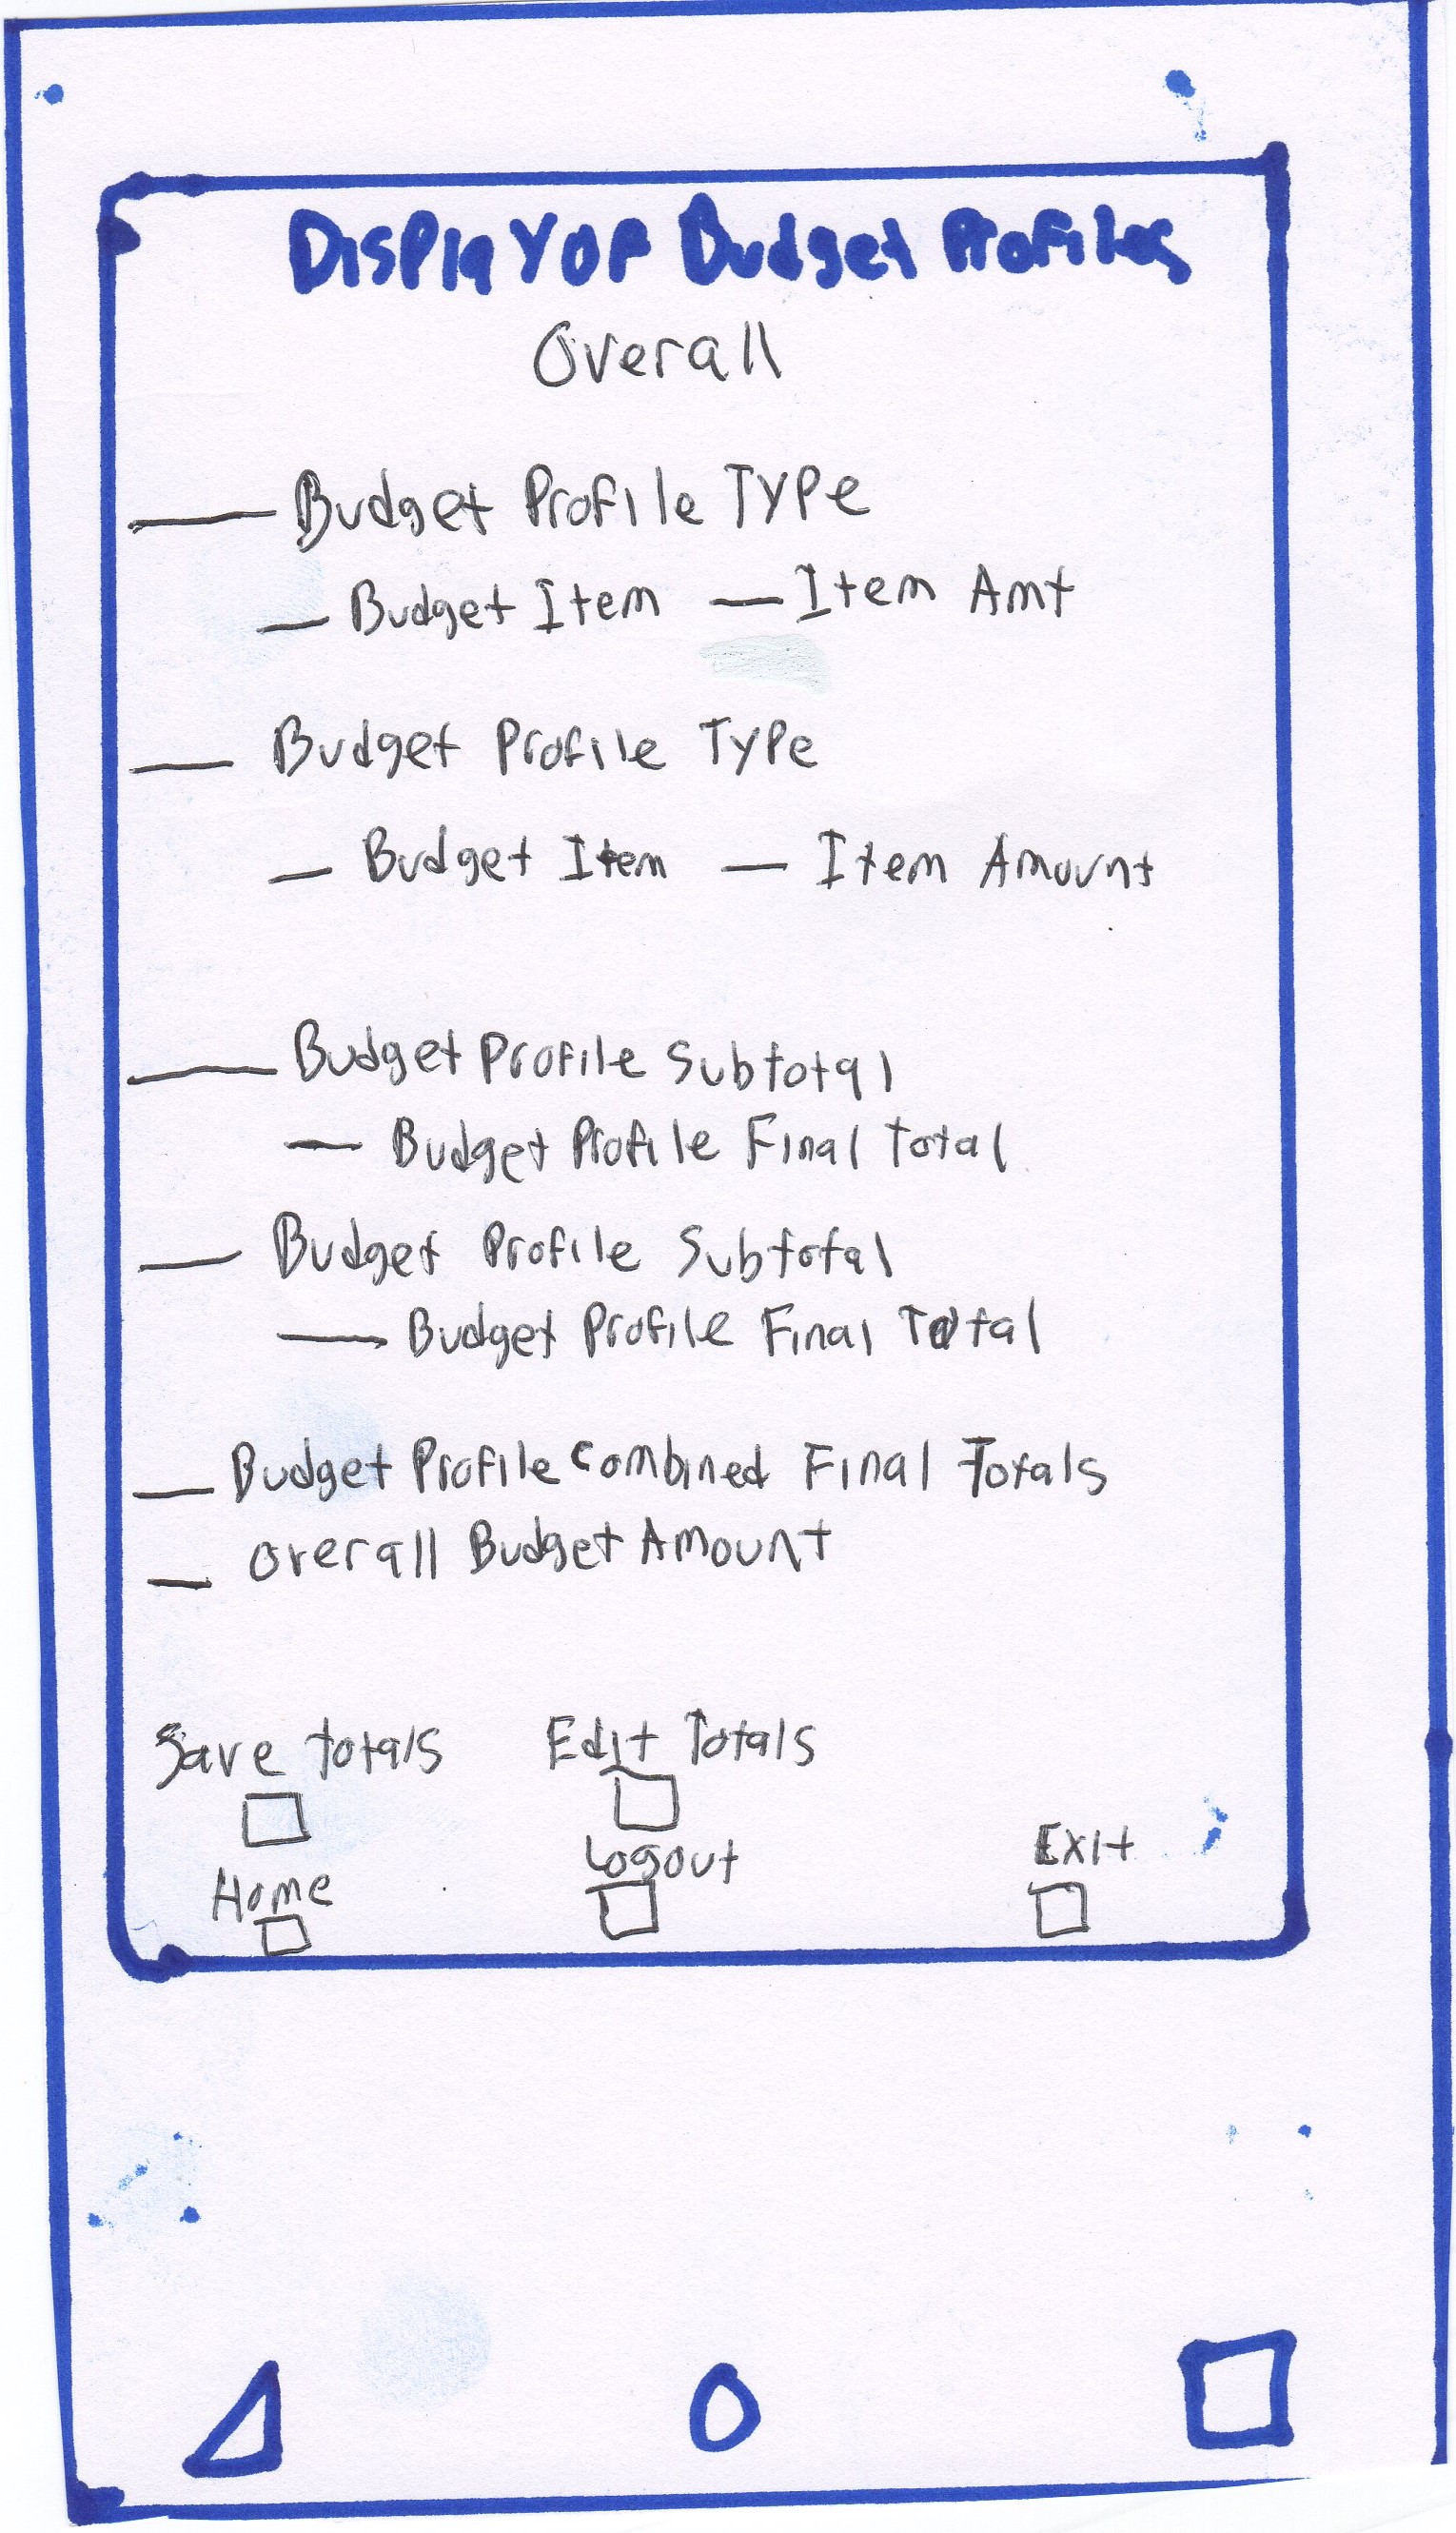 Display of Budget Profiles
Overall
— Budget Profile Type
— Budget Item — Item Amt
— Budget Profile Type
— Budget Item — Item Amount
— Budget Profile Subtotal
— Budget Profile Final Total
— Budget Profile Subtotal
— Budget Profile Final Total
— Budget Profile Combined Final Totals
— Overall Budget Amount
Save Totals Edit Totals
Home Logout Exit